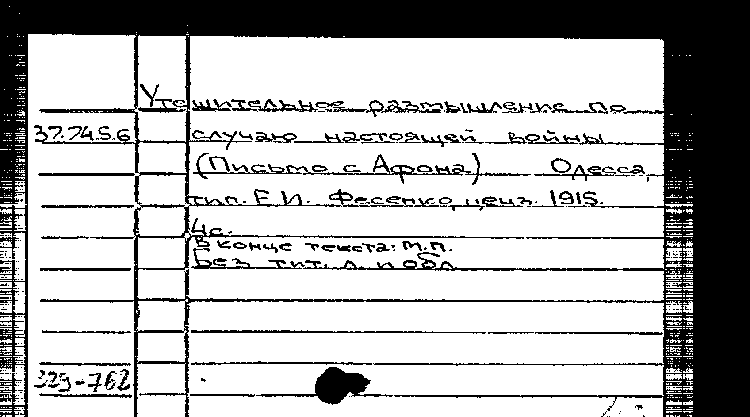 Утешительное размышление по
37.74.5.6 случаю настоящей войны
(Письмо с Афона.) Одесса,
тип. Е.И. Фесенко, ценз. 1915.
4с.
В конце текста: М.П.
Без тит. л. и обл.
329-762